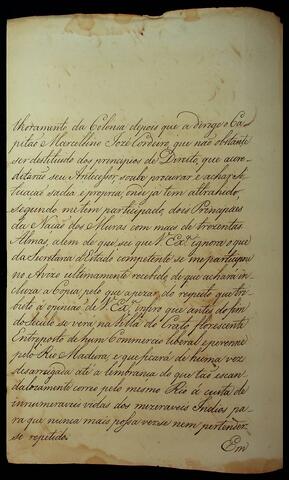 lhoramento da Colonia depois que a dirige o Ca-
pitão Marcellino José Cordeiro, que não obstante
ser destituido dos principios de Direito, que acre-
ditarão seu Antecessor, soube procurar e achar si-
tuação sadia, e propria, onde já tem attrahido,
segundo me tem participado, dous Principaes
da Nação dos Muras com mais de trezentas
Almas, alem de que sei que V. Exª. ignora o que
da Secretaria d'Estado competente se me participou
no Avizo ultimamente recebido, de que achará in-
cluza a Copia, pelo que apezar do respeito que tri-
buto á opinião de V. Exª. infiro que antes do fim
do Seculo se verá na Villa do Crato florescente
Entreposto de hum Commercio liberal e perenne
pelo Rio Madura, e que ficará de huma vez
desarreigada até a lembrança do que tão escan-
dalozamente correo pelo mesmo Rio á custa de
innumeraveis vidas dos mizeraveis Indios pa-
ra que nunca mais possa verse nem pertender-
se repetido.
Em